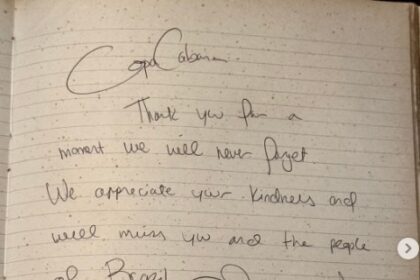 Copa Cabana
Thank you for a
moment we will never forget.
We appreciate your kindness and
will miss you and the people
of Brazil